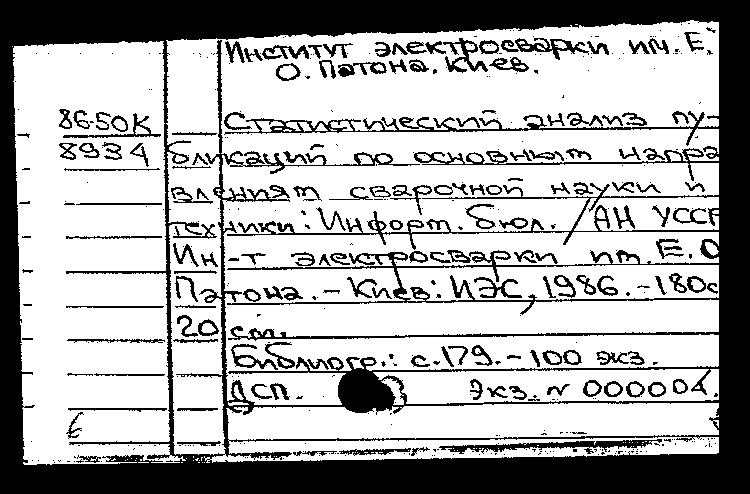 Институт электросварки им. Е.
О. Патона. Киев.
86-50К Статистический анализ пу-
8934 бликаций по основным напра
влениям сварочной науки и
техники: Информ. бюл. / АН УССР
Ин-т электросварки им. Е.О
Патона. - Киев: ИЭС, 1986. - 180с
20 см.
Библиогр.: с.179. - 100 экз.
ДСП. Экз. N 000004.